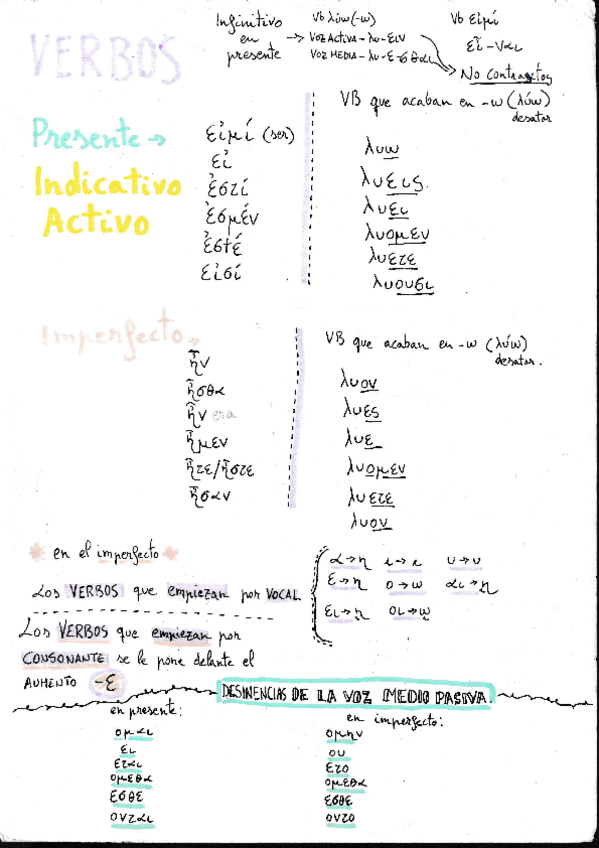 VERBOS
Infinitivo en presente →
Vb λύω (-ω)
VOZ ACTIVA - λυ - ειν
VOZ MEDIA - λυ - ε - σθαι
Vb εἰμί
εἶ - ναι
No contractos
Presente →
Indicativo
Activo
εἰμί (ser)
εἰ
ἐστί
ἐσμέν
ἐστέ
εἰσί
VB que acaban en -ω (λύω)
desatar
λυω
λυεις
λυει
λυομεν
λυετε
λυουσι
Imperfecto →
ἦν
ἦσθα
ἦν era
ἦμεν
ἦτε/ἦστε
ἦσαν
VB que acaban en -ω (λύω)
desatar.
λυον
λυες
λυε
λυομεν
λυετε
λυον
* en el imperfecto *
LOS VERBOS que empiezan por VOCAL
α→η ι→ι υ→υ
ε→η ο→ω αι→ῃ
ει→ῃ οι→ῳ
LOS VERBOS que empiezan por
CONSONANTE se le pone delante el
AUMENTO -ε
DESINENCIAS DE LA VOZ MEDIO PASIVA.
en presente:
ομαι
ει
εται
ομεθα
εσθε
ονται
en imperfecto:
ομην
ου
ετο
ομεθα
εσθε
οντο